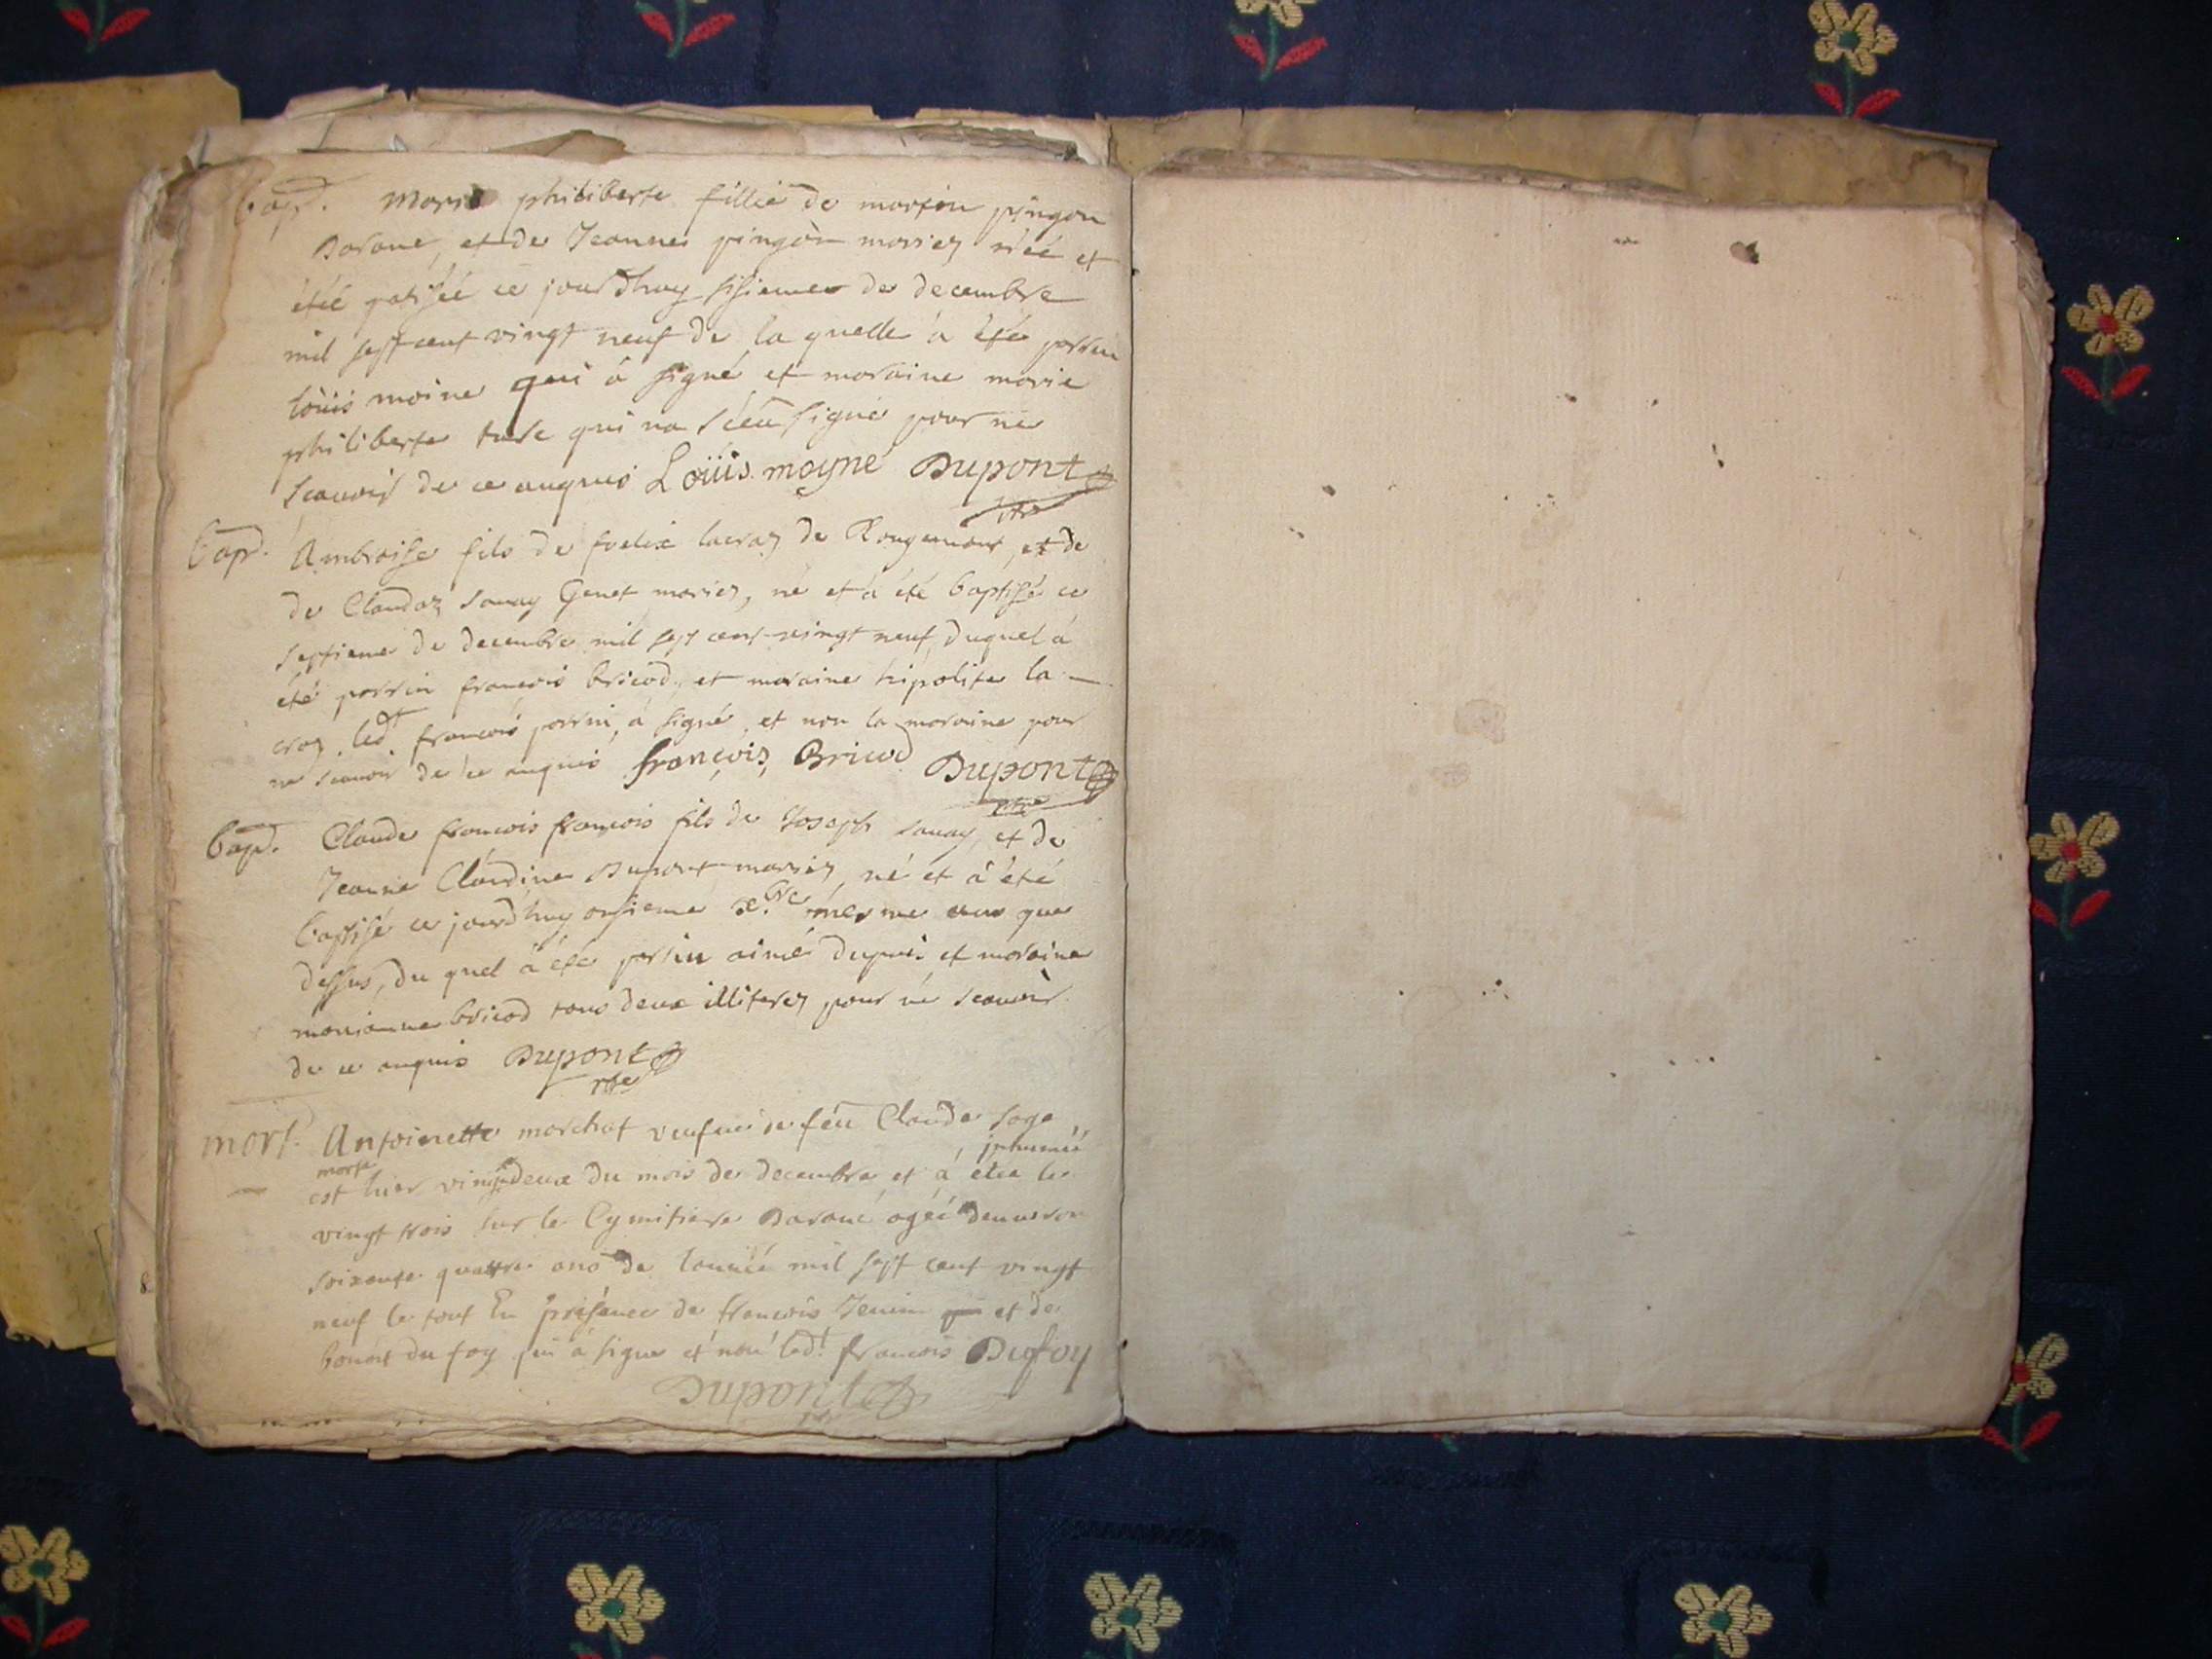 bapt. Marie philiberte fillie de martin pingon
Darane, et de Jeanne pingon mariez née et
étée patisée ce jourdhuy sisieme de decembre
mil sept cent vingt neuf de la quelle à été parrin
loüis moine qui à signé et maraine marie
philiberte qui na sceu signer pour ne
scavoir de ce enquis Loüis moyne Dupont
bapt. Ambroise fils de foelix lacraz de Rougemont, et de
de Claudaz savay Genet mariez, né et à été baptisé ce
septieme de decembre mil sept cent vingt neuf, duquel à
été parrin francois bricod, et maraine hipolite la
craz. led.t francois parrin, à signé, et non la maraine pour
ne scavoir de ce enquis françois Bricod Dupont
bapt. Claude francois françois fils de Joseph savay, et de
Jeanne Claudine Dupont mariez, né et à été
baptisé ce jourdhuy onsieme xbre mesme que
dessus, du quel à été parrin aimé dupuis et maraine
marianne bricod tous deux illiterez pour né scavoir
de ce enquis Dupont
mort. Antoinette marchat veufve de feu Claude sage
morte inhumée
est hier vingtdeux du mois de decembre et à étée le
vingt trois sur le Cymitiere Darane agéé denviron
soixente quattre ans de lannéé mil sept cent vingt
neuf le tout En présence de francois Jenin et de
benoit du foy qui à signé et non led.t francois Dufoy
Dupont